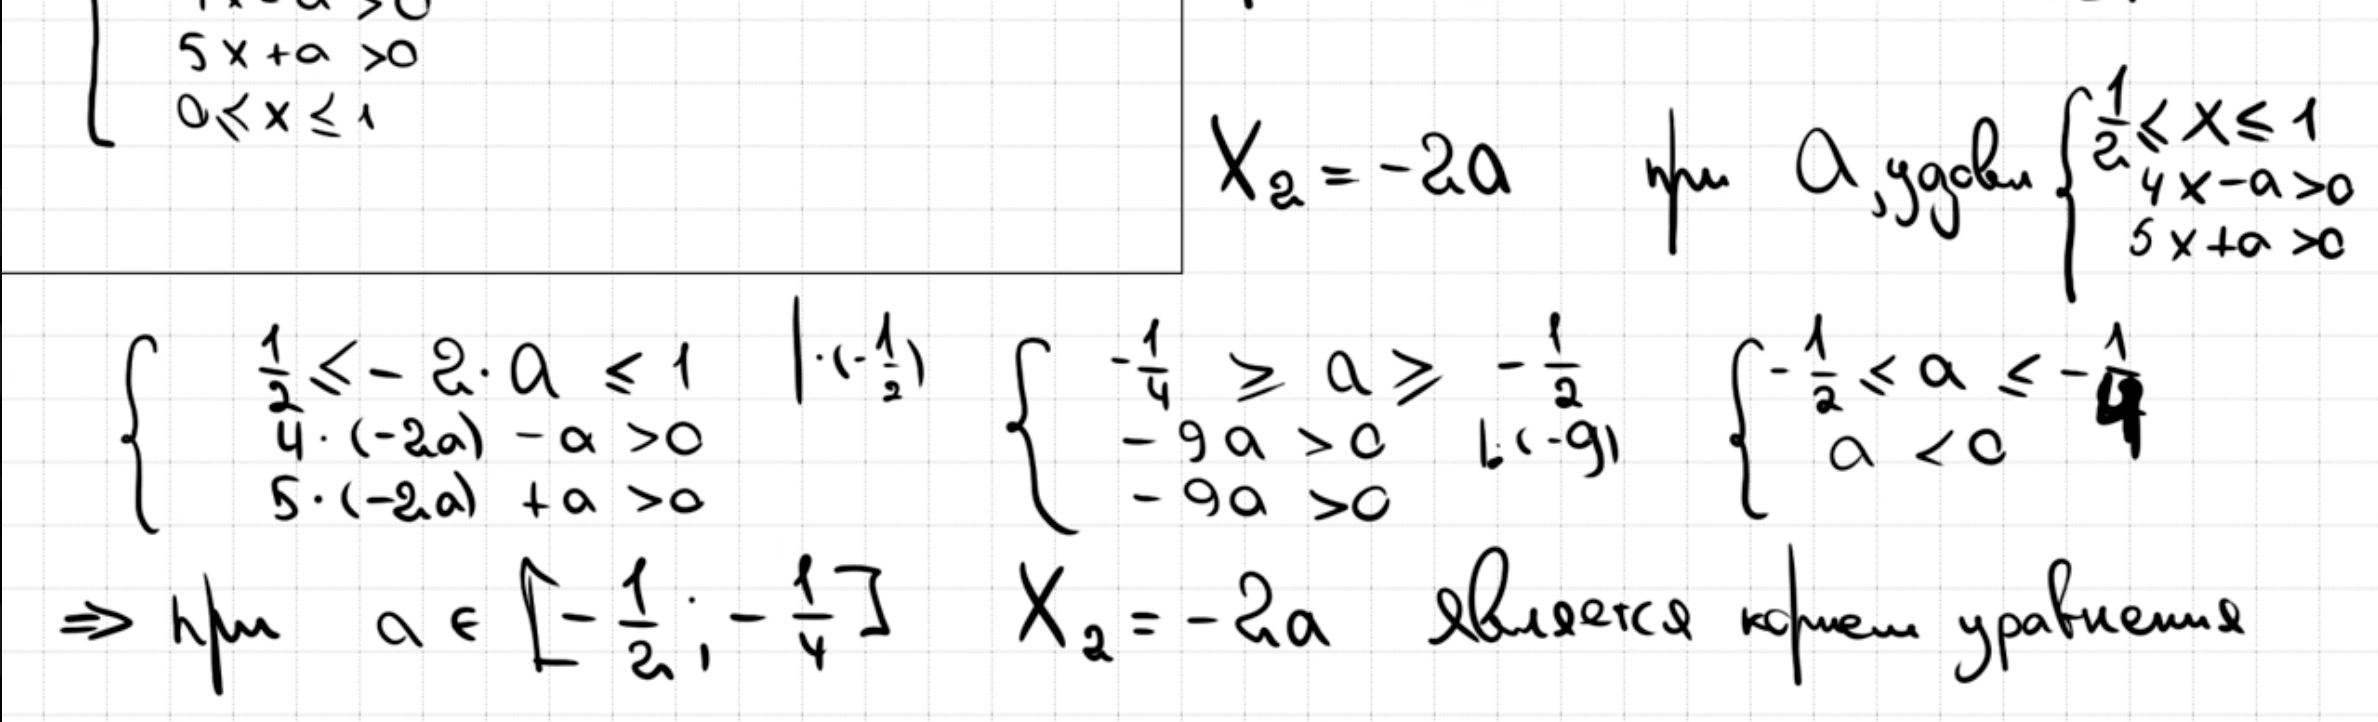 5x+a >0
0 ≤ x ≤ 1
X₂ = -2a при a, удовл { 1/2 ≤ x ≤ 1
4x-a>0
5x+a>0
{ 1/2 ≤ -2·a ≤ 1 |·(-1/2) { -1/4 ≥ a ≥ -1/2 { -1/2 ≤ a ≤ -1/4
4·(-2a) -a >0 -9a >0 |:(-9) a <0
5·(-2a) +a >0 -9a >0
⇒ при a ∈ [-1/2; -1/4] X₂ = -2a является корнем уравнения